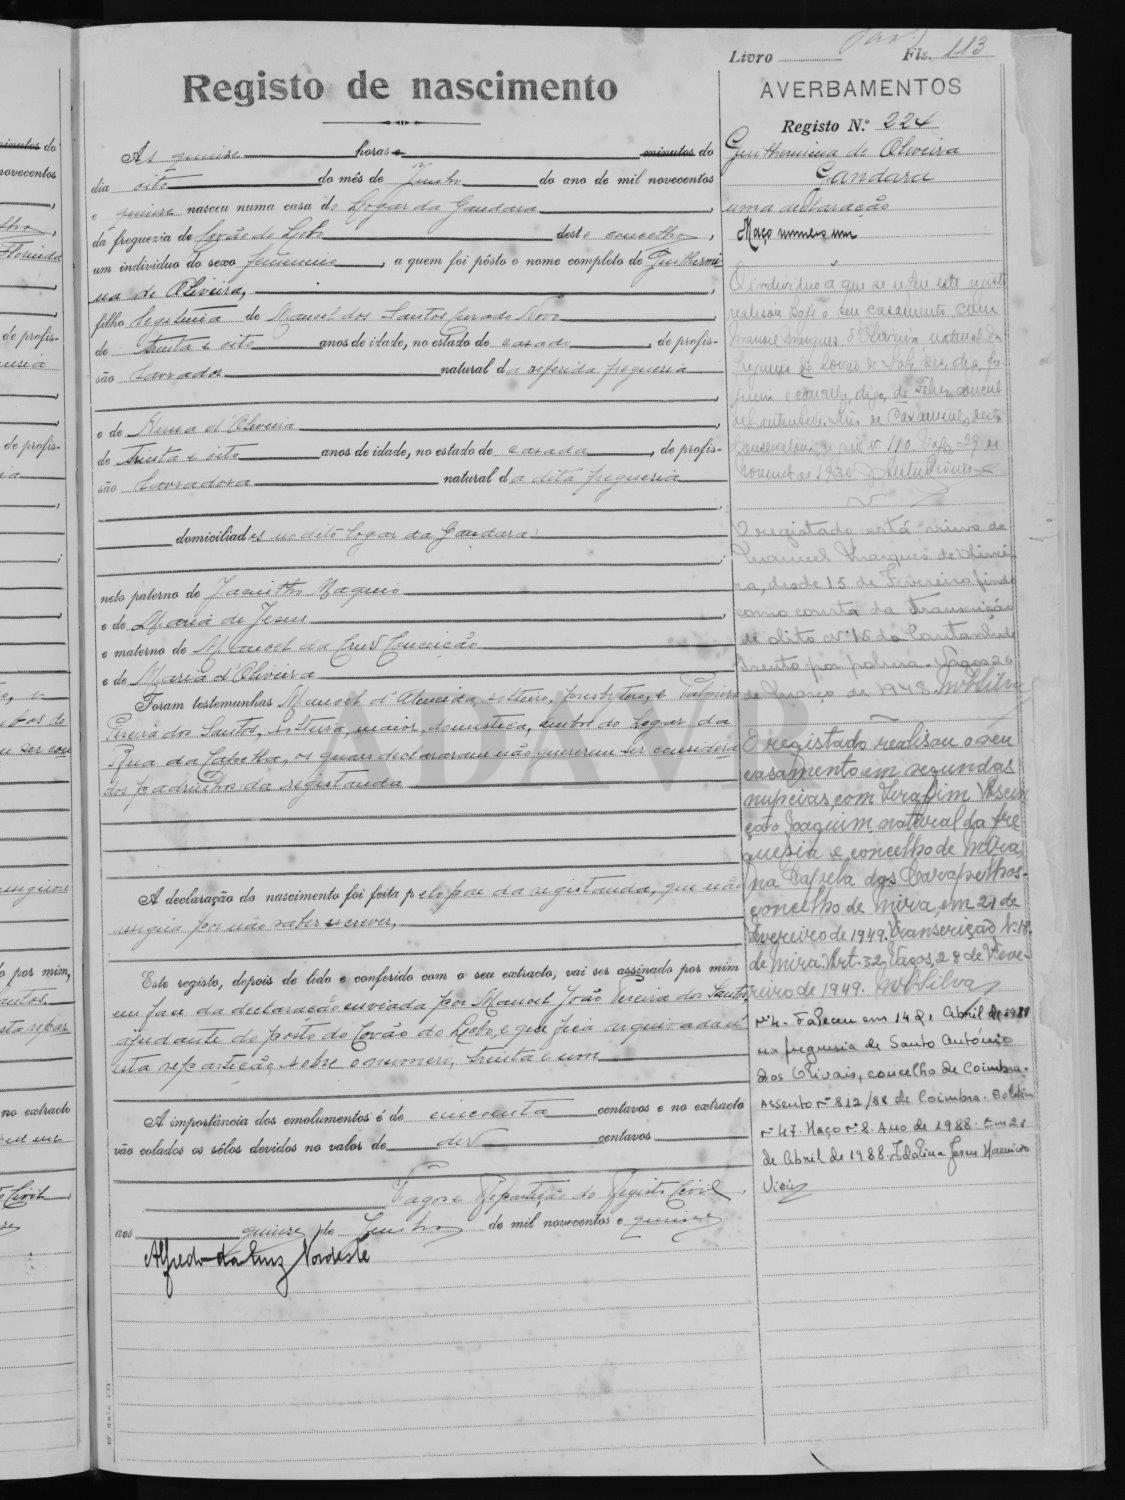 Livro Fls. 113
Registo de nascimento
AVERBAMENTOS
Registo N.º 224
Guilhermina de Oliveira
Gandara
uma declaração
Maço numero um
Ás quinze horas e minutos do
dia oito do mês de Junho do ano de mil novecentos
e quinze nasceu numa casa do logar da Gandara
da freguezia de Covão do Lobo deste concelho,
um individuo do sexo feminino, a quem foi pôsto o nome completo de Guilhermi
na de Oliveira,
filho legitima de Manoel dos Santos Jurado Novo
de trinta e oito anos de idade, no estado de casado, de profis-
são lavrador natural da referida freguesia
e de Rosa d'Oliveira
de trinta e oito anos de idade, no estado de casada, de profis-
são lavradora natural da dita freguesia
domiciliados no dito logar da Gandara
neto paterno de Jacintho
e de Maria de Jesus
e materno de Manoel da Cruz Conceição
e de Maria d'Oliveira
Foram testemunhas Manoel d'Almeida, solteiro, presbytero, e Palmira
Pereira dos Santos, solteira, maior, domestica, ambos do logar da
Rua da Capella, os quaes declararam não quererem ser considera
dos padrinhos da registanda
A declaração do nascimento foi feita pelo pae da registanda, que não
assigna por não saber escrever,
Este registo, depois de lido e conferido com o seu extracto, vai ser assinado por mim
em face da declaração enviada por Manoel João Pereira dos Santos,
ajudante do posto do Covão do Lobo, e que fica arquivada n'
esta repartição sobre o numero, trinta e um
A importância dos emolumentos é de cincoenta centavos e no extracto
vão colados os sêlos devidos no valor de dez centavos
Vagos e Repartição do Registo Civil,
aos quinze de Junho de mil novecentos e quinze
Alfredo da Cruz Nordeste
O individuo a que se refere este registo
realisou hoje o seu casamento com
Manuel Marques d'Oliveira natural da
freguesia de Covão do Lobo
Conservatoria nº 110. Vagos, 29 de
Novembro de 1930
O registado está viuva de
Manuel Marques de Olivei-
ra, desde 15 de Fevereiro findo
como consta da transcrição
de obito Nº 15 de Cantanhede
Isento por pobreza. Vagos 26
de Março de 1948. Silva
O registado realisou o seu
casamento em segundas
nupcias, com Serafim
Joaquim, natural da fre
guesia e concelho de Mira,
na Capela dos Carapelhos-
concelho de Mira, em 21 de
Fevereiro de 1949. Transcrição N. 18.
de Mira. Art. 32, Vagos, 28 de Feve-
reiro de 1949. Silva
nº 4. Faleceu em 14 de Abril de 1988
na freguesia de Santo António
dos Olivais, concelho de Coimbra.
Assento nº 812/88 de Coimbra. Boletim
nº 47. Maço nº 8. Ano de 1988. Em 21
de Abril de 1988. Idalina Jesus
ADAVR